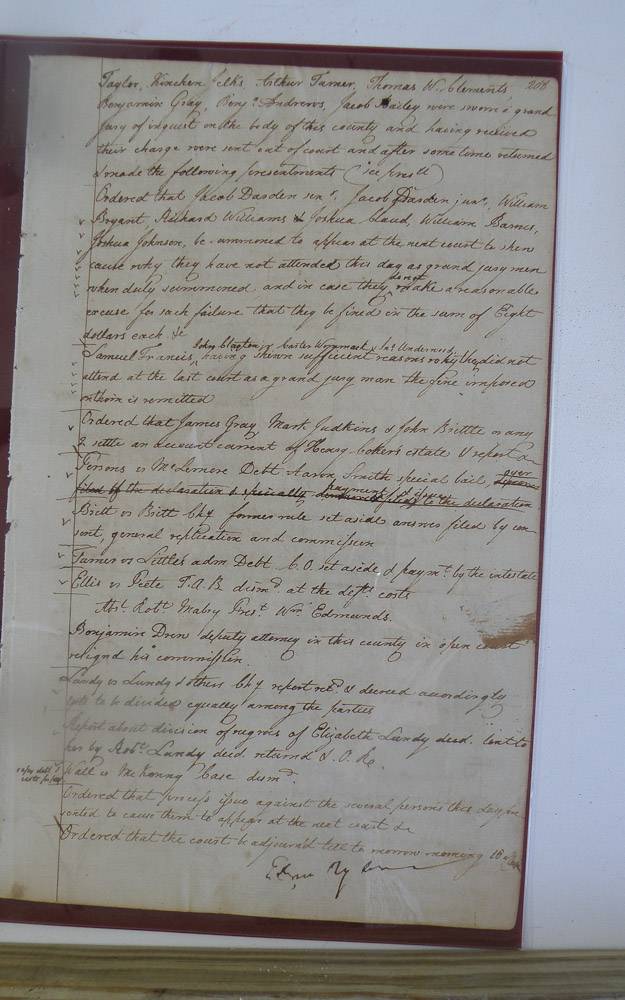 Taylor, Kinchen Felts, Arthur Turner, Thomas W. Clements 208
Benjamin Gray, Benjn. Andrews, Jacob Bailey were sworn a grand
jury of inquest on the body of this county and having received
their charge were sent out of court and after some time returned
& made the following presentments (see
Ordered that Jacob Darden senr., Jacob Darden junr., William
Bryant, Richard Williams & Joshua Claud, William Barnes,
Joshua Johnson, be summoned to appear at the next court to shew
cause why they have not attended this day as grand jury men
when duly summoned and in case they do not make a reasonable
excuse for such failure that they be fined in the sum of Eight
dollars each &c
Samuel Francis, John Clayton, Carter Wommack & Jas. Underwood having shewn sufficient reasons why they did not
attend at the last court as a grand jury man the fine imposed
on them is remitted
Ordered that James Gray, Mark Judkins & John Brittle or any
2 settle an account current of Henry Cokers estate & report &c
Persons vs McLemore Debt Aaron Smith special bail, oyer
filed of the declaration & specially payment & issue to the declaration
Britt vs Britt Chy former rule set aside answer filed by con
sent, general replication and commission
Turner vs Littles adm Debt C.O. set aside & paymt. by the intestate
Ellis vs Peete T.A.B. dismd. at the defts. costs
Abst. Robt. Mabry Prest. Wm. Edmunds.
Benjamin Drew deputy attorney in this county in open court
resignd his commission.
Lundy vs Lundy & others Chy report retd. & decreed accordingly
costs to be divided equally among the parties
Report about division of negroes of Elizabeth Lundy decd. lent to
her by Robt. Lundy decd. returned & O.R.
Wall vs McKenny Case dismd.
Ordered that process issue against the several persons this day pre
sented to cause them to appear at the next court &c
Ordered that the court be adjourd till to morrow morning 10